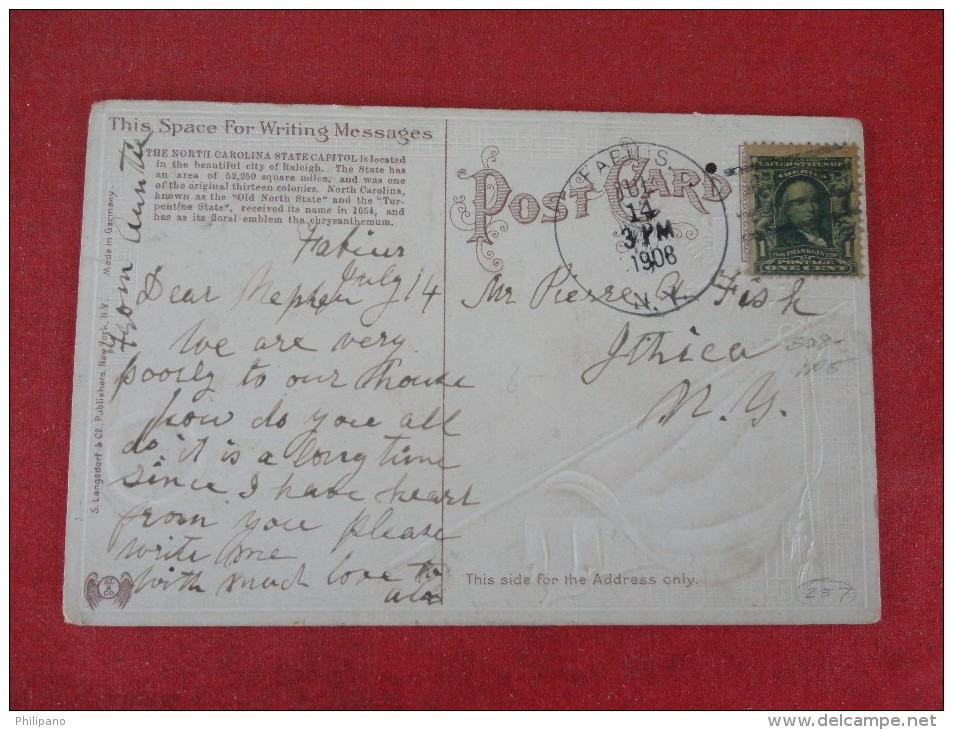 This Space For Writing Messages
THE NORTH CAROLINA STATE CAPITOL is located
in the beautiful city of Raleigh. The State has
an area of 52,250 square miles, and was one
of the original thirteen colonies. North Carolina,
known as the "Old North State" and the "Tur-
pentine State", received its name in 1654, and
has as its floral emblem the chrysanthemum.
Made in Germany.
S. Langsdorf & Co., Publishers, New York, N.Y.
From Auntie
Fabius
July 14
Dear Nephew
We are very
poorly to our house
how do you all
do it is a long time
since I have heart
from you please
write me
with much love to
all
POST CARD
FABIUS
JUL
14
3 PM
1908
N.Y.
UNITED STATES OF
AMERICA
1 FRANKLIN 1
POSTAGE
ONE CENT
Mr Pierre A. Fish
Ithica
N.Y.
This side for the Address only.
257
Philipano
www.delcampe.net